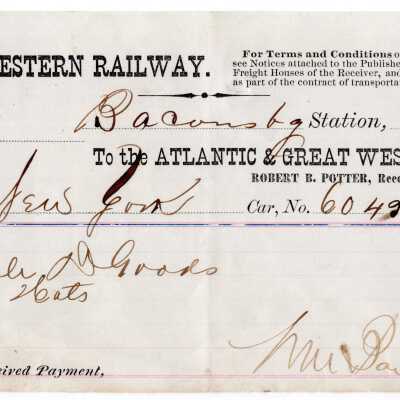 ESTERN RAILWAY.
For Terms and Conditions o
see Notices attached to the Publishe
Freight Houses of the Receiver, and
as part of the contract of transporta
Baconsbg Station,
To the ATLANTIC & GREAT WES
ROBERT B. POTTER, Rece
New York Car, No. 6049
D Goods
Hats
eived Payment,
Wm